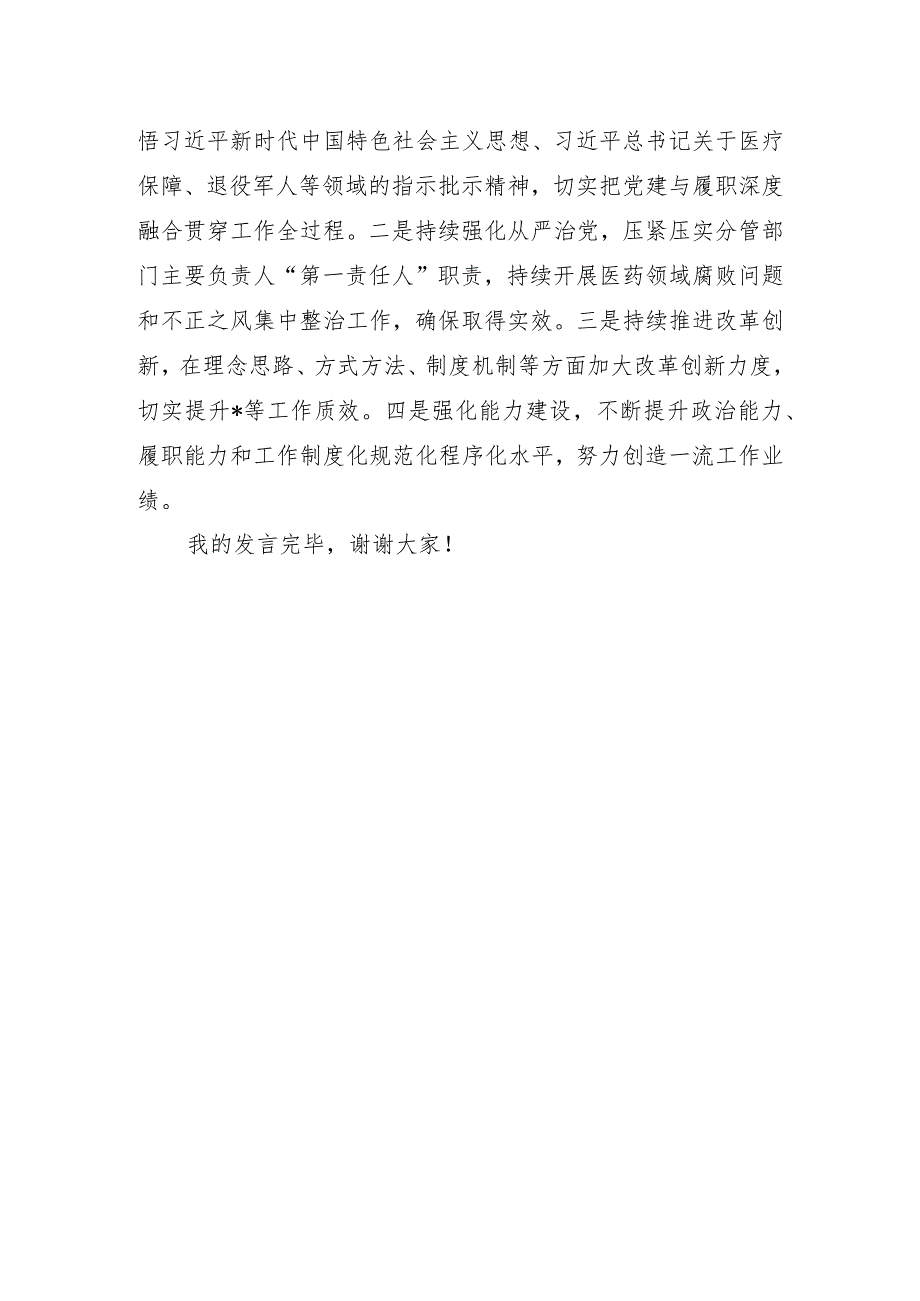 悟习近平新时代中国特色社会主义思想、习近平总书记关于医疗
保障、退役军人等领域的指示批示精神，切实把党建与履职深度
融合贯穿工作全过程。二是持续强化从严治党，压紧压实分管部
门主要负责人“第一责任人”职责，持续开展医药领域腐败问题
和不正之风集中整治工作，确保取得实效。三是持续推进改革创
新，在理念思路、方式方法、制度机制等方面加大改革创新力度，
切实提升*等工作质效。四是强化能力建设，不断提升政治能力、
履职能力和工作制度化规范化程序化水平，努力创造一流工作业
绩。
我的发言完毕，谢谢大家！